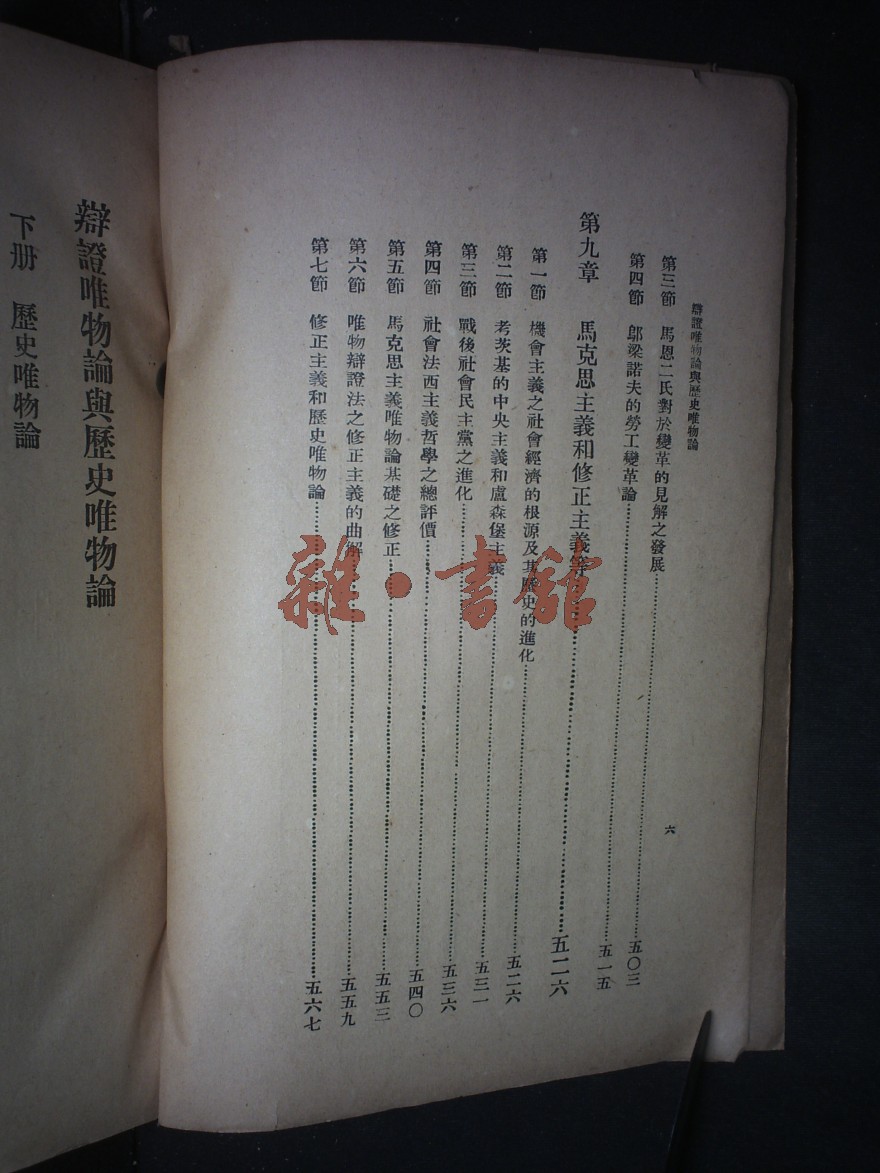 辯證唯物論與歷史唯物論
第三節　馬恩二氏對於變革的見解之發展……五〇三
第四節　鄔梁諾夫的勞工變革論……五一五
第九章　馬克思主義和修正主義等……五二六
第一節　機會主義之社會經濟的根源及其歷史的進化……五二六
第二節　考茨基的中央主義和盧森堡主義……五三一
第三節　戰後社會民主黨之進化……五三六
第四節　社會法西主義哲學之總評價……五四〇
第五節　馬克思主義唯物論基礎之修正……五五三
第六節　唯物辯證法之修正主義的曲解……五五九
第七節　修正主義和歷史唯物論……五六七
六
辯證唯物論與歷史唯物論
下册　歷史唯物論
雜·書館